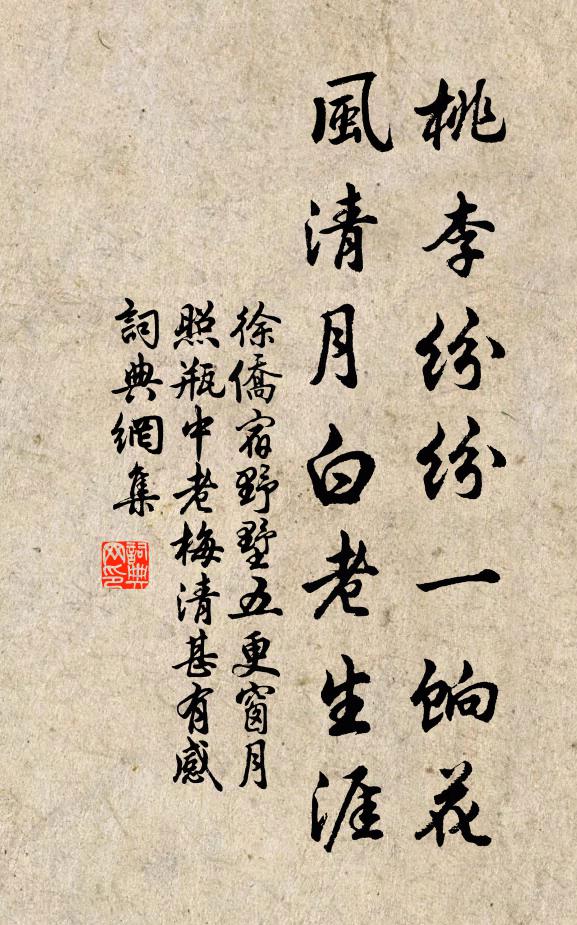 桃李紛紛一餉花
風清月白老生涯
徐僑宿野墅五更窗月
照瓶中老梅清甚有感
詞典網集
詞典
网印